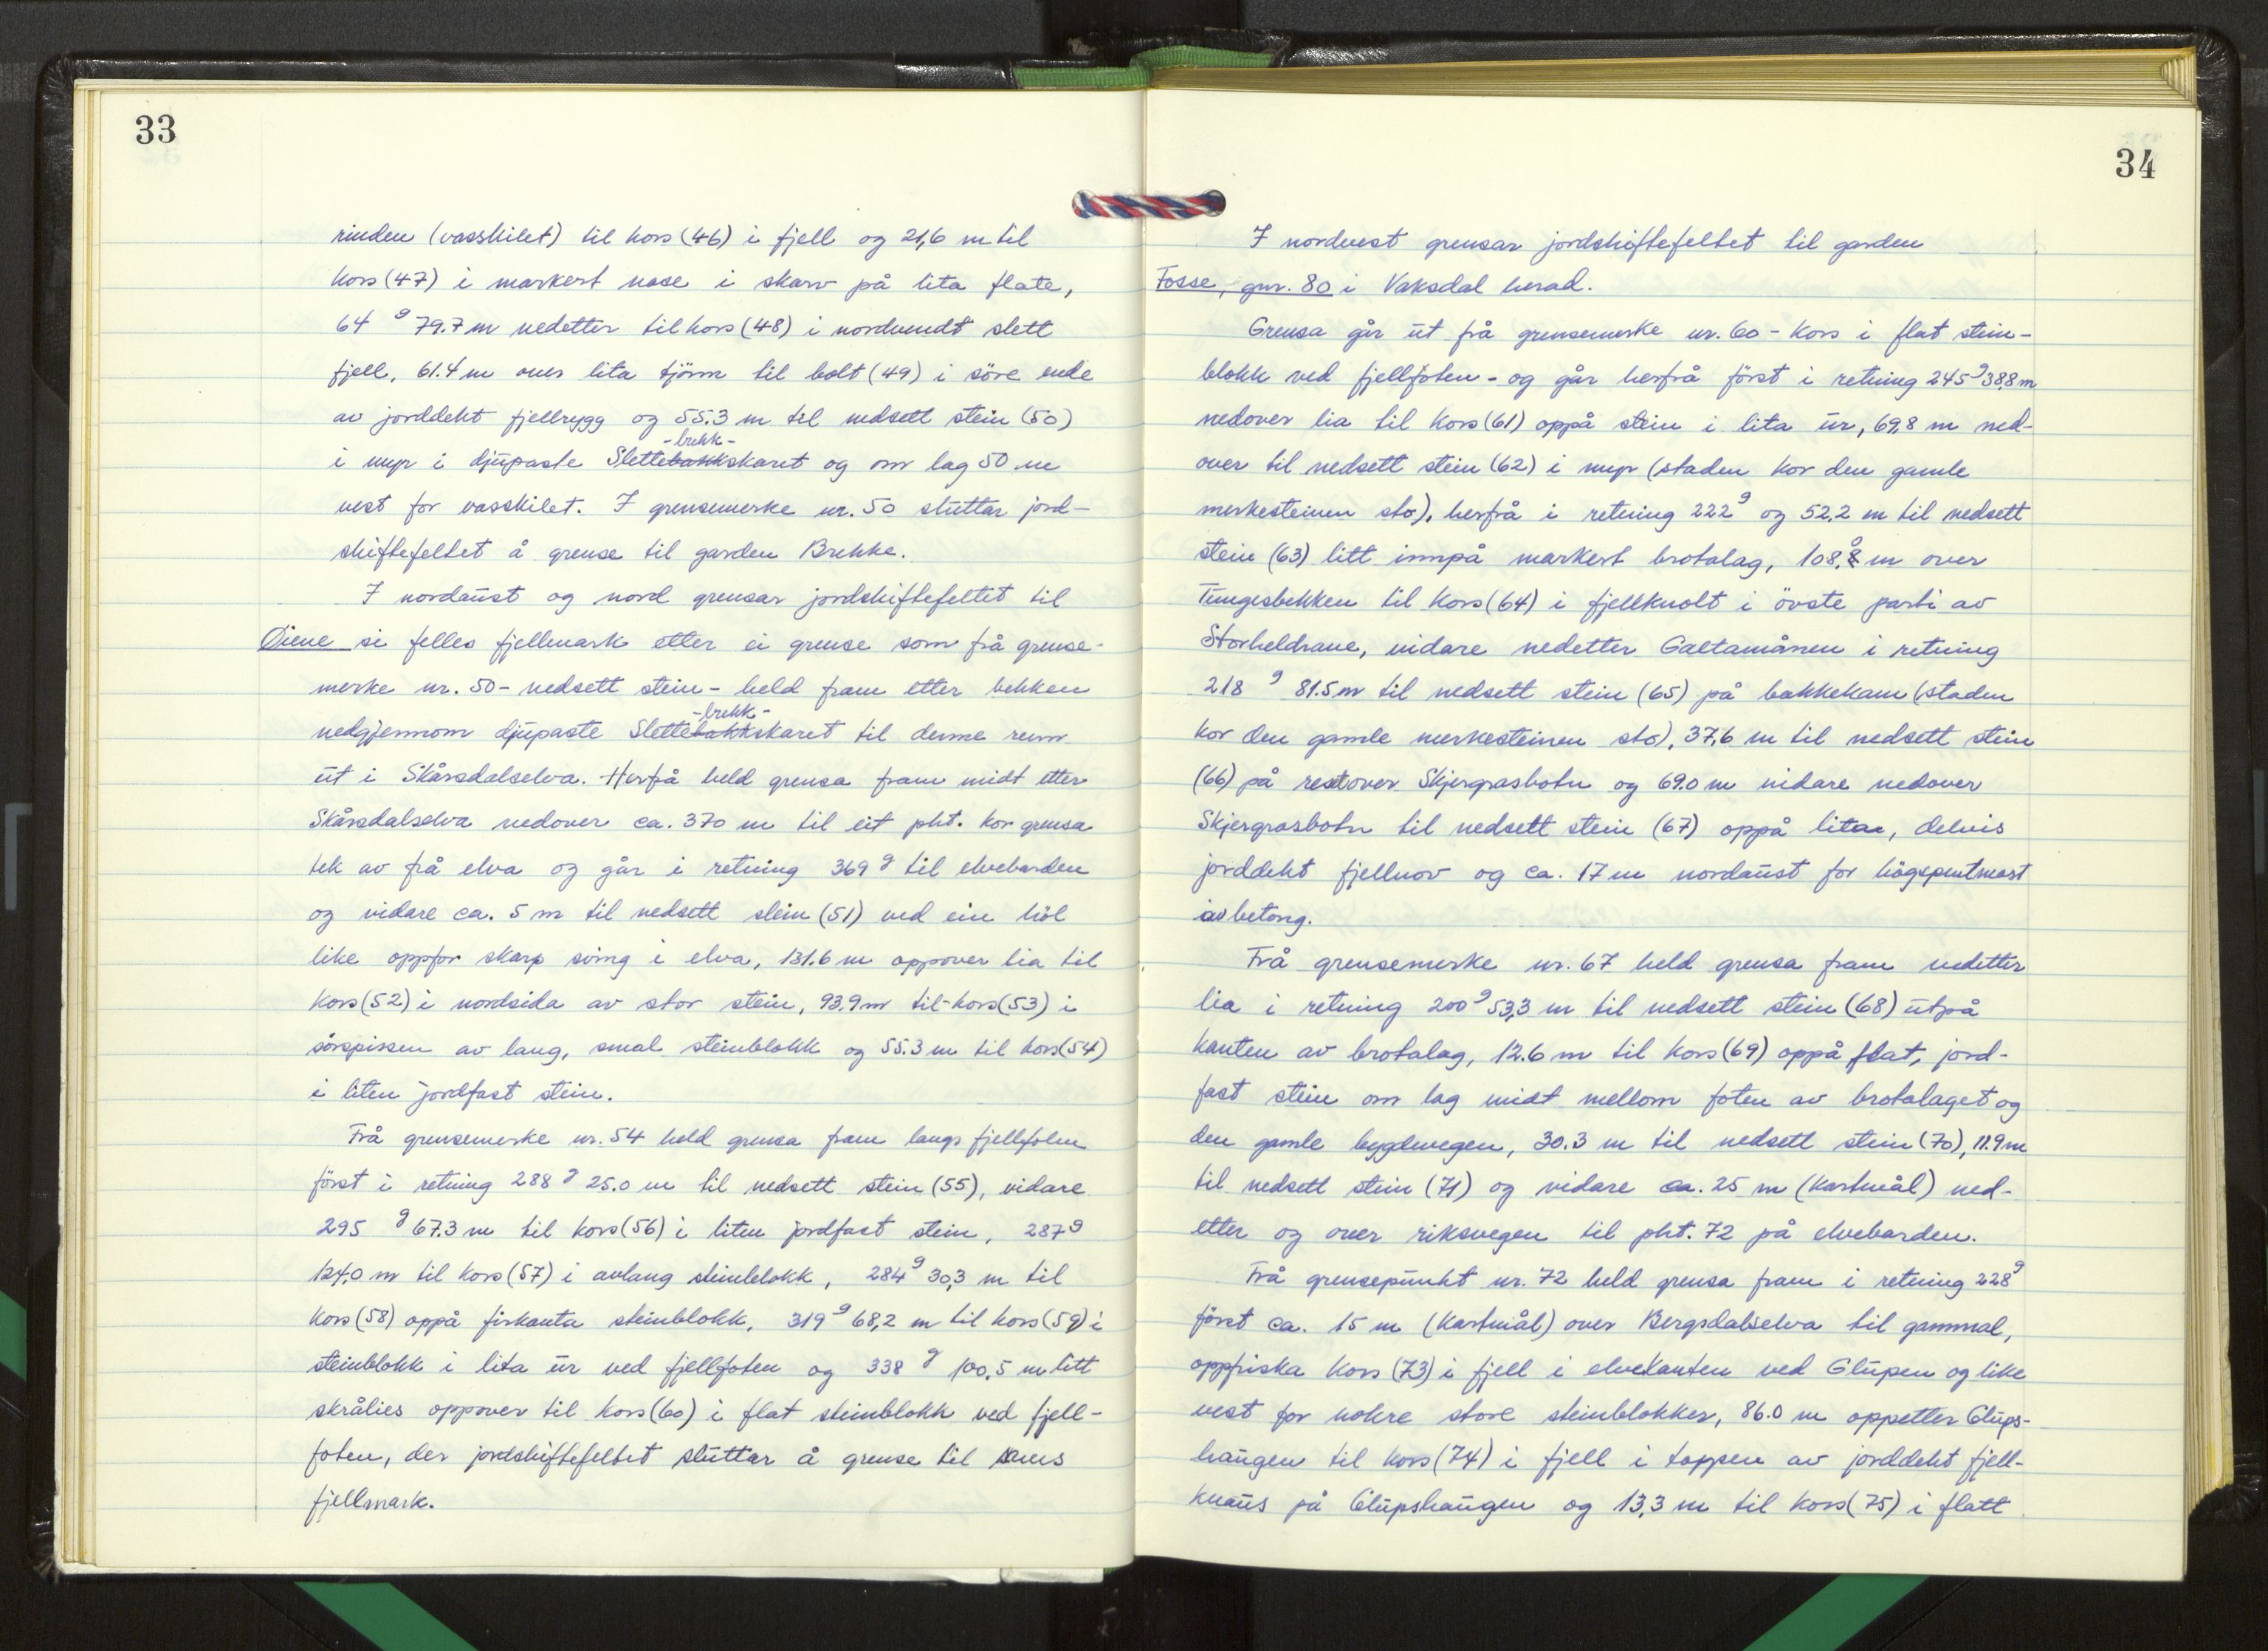 33
rinden (vasskilet) til kors (46) i fjell og 21,6 m til
kors (47) i markert nase i skarv på lita flate,
64 g 79.7 m nedetter til kors (48) i nordvendt slett
fjell, 61.4 m over lita tjörn til bolt (49) i søre ende
av jorddekt fjellrygg og 55.3 m til nedsett stein (50)
-brekk-
i myr i djupaste Slettebakkskaret og om lag 50 m
vest for vasskilet. I grensemerke nr. 50 sluttar jord-
skiftefeltet å grense til garden Brekke.
I nordaust og nord grensar jordskiftefeltet til
Öiene si felles fjellmark etter ei grense som frå grense-
merke nr. 50 - nedsett stein - held fram etter bekken
-brekk-
nedgjennom djupaste Slettebakkskaret til denne renn
ut i Skårsdalselva. Herfrå held grensa fram midt etter
Skårsdalselva nedover ca. 370 m til eit pkt. kor grensa
tek av frå elva og går i retning 369 g til elvebarden
og vidare ca. 5 m til nedsett stein (51) ved ein höl
like oppfor skarp sving i elva, 131.6 m oppover lia til
kors (52) i nordsida av stor stein, 93.9 m til kors (53) i
sörspissen av lang, smal steinblokk og 55.3 m til kors (54)
i liten jordfast stein.
Frå grensemerke nr. 54 held grensa fram langs fjellfoten
först i retning 288 g 25.0 m til nedsett stein (55), vidare
295 g 67.3 m til kors (56) i liten jordfast stein, 287 g
124,0 m til kors (57) i avlang steinblokk, 284 g 30,3 m til
kors (58) oppå firkanta steinblokk, 319 g 68,2 m til kors (59) i
steinblokk i lita ur ved fjellfoten og 338 g 100,5 m litt
skrålies oppover til kors (60) i flat steinblokk ved fjell-
foten, der jordskiftefeltet sluttar å grense til
fjellmark.
34
I nordvest grensar jordskiftefeltet til garden
Fosse, gnr. 80 i Vaksdal herad.
Grensa går ut frå grensemerke nr. 60 - kors i flat stein-
blokk ved fjellfoten - og går herfrå först i retning 245 g 38,8 m
nedover lia til kors (61) oppå stein i lita ur, 69,8 m ned-
over til nedsett stein (62) i myr (staden kor den gamle
merkesteinen sto), herfrå i retning 222 g og 52,2 m til nedsett
stein (63) litt innpå markert brotalag, 108,8 m over
Tungesbekken til kors (64) i fjellknolt i övste parti av
Storheldrane, vidare nedetter Galtamånen i retning
218 g 81.5 m til nedsett stein (65) på bakkekam (staden
kor den gamle merkesteinen sto), 37,6 m til nedsett stein
(66) på rest over Skjergrasbotn og 69.0 m vidare nedover
Skjergrasbotn til nedsett stein (67) oppå lita, delvis
jorddekt fjellnov og ca. 17 m nordaust for högspentmast
av betong.
Frå grensemerke nr. 67 held grensa fram nedetter
lia i retning 200 g 53,3 m til nedsett stein (68) utpå
kanten av brotalag, 12.6 m til kors (69) oppå flat, jord-
fast stein om lag midt mellom foten av brotalaget og
den gamle bygdevegen, 30.3 m til nedsett stein (70), 11.9 m
til nedsett stein (71) og vidare ca. 25 m (kartmål) ned-
etter og over riksvegen til pkt. 72 på elvebarden.
Frå grensepunkt nr. 72 held grensa fram i retning 228 g
först ca. 15 m (kartmål) over Bergsdalselva til gammal,
oppfriska kors (73) i fjell i elvekanten ved Glupen og like
vest for nokre store steinblokker, 86.0 m oppetter Glups-
haugen til kors (74) i fjell i toppen av jorddekt fjell-
knaus på Glupshaugen og 13,3 m til kors (75) i flatt